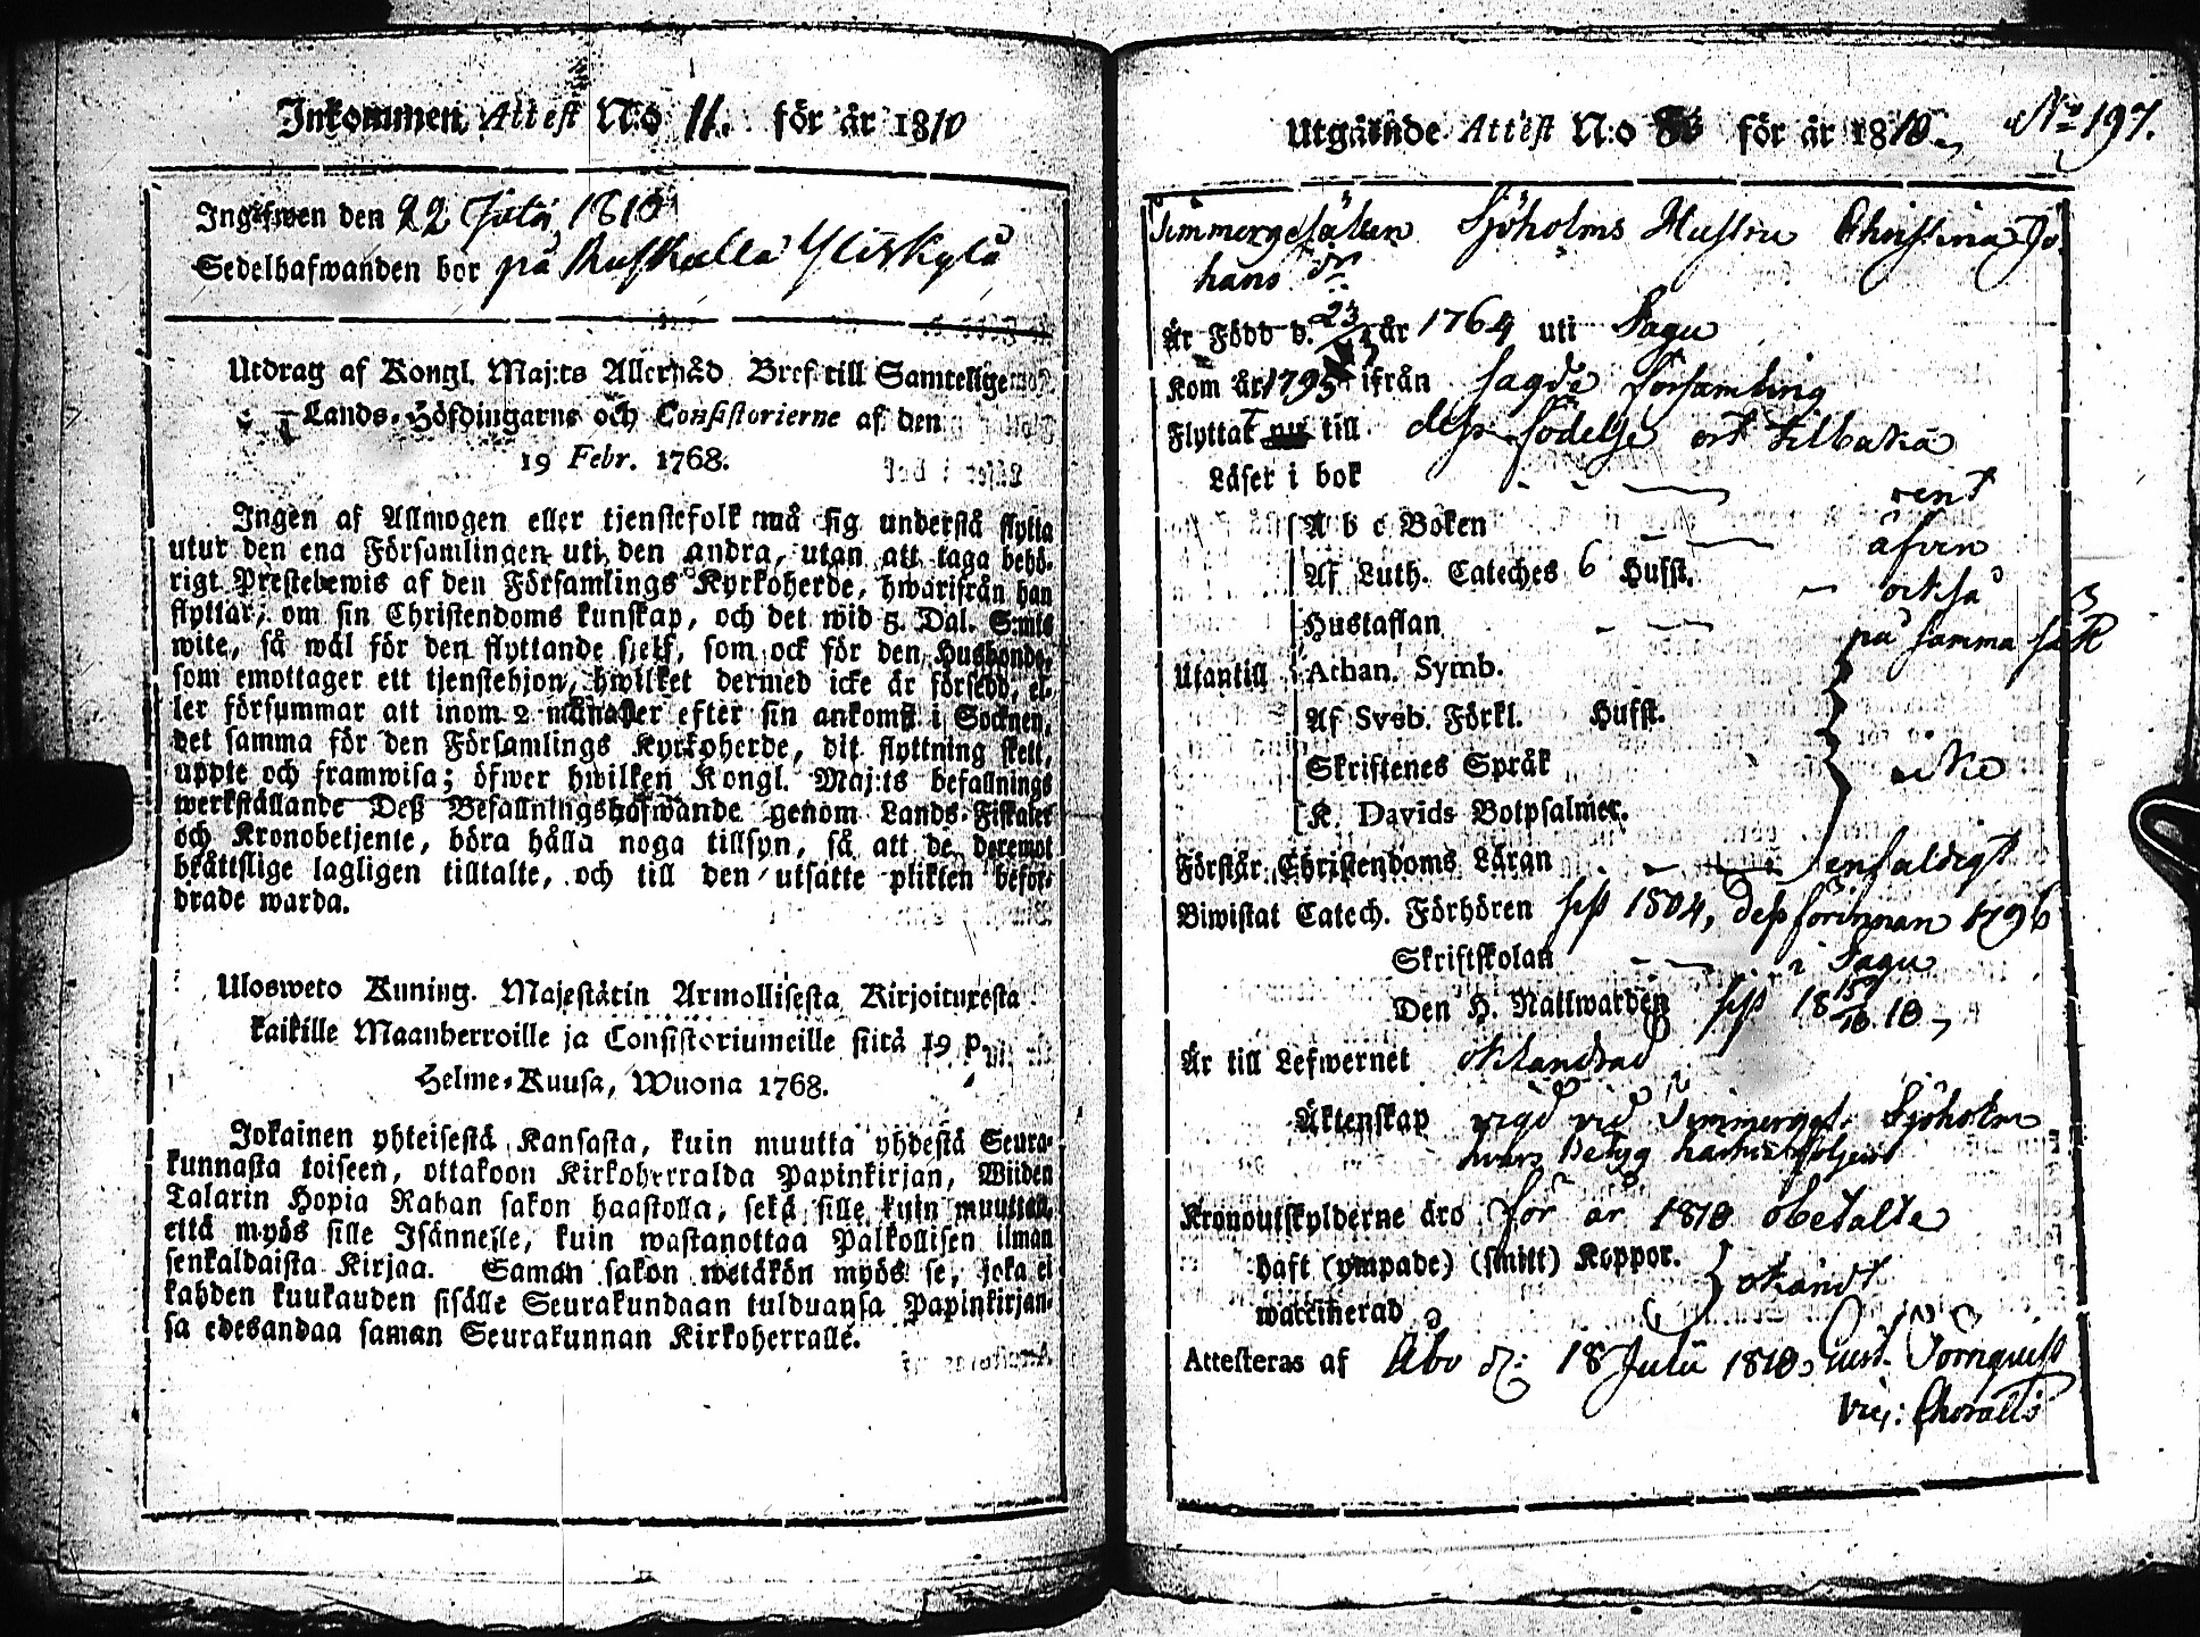 Inkommen Attest N:o 11. för år 1810
Ingifwen den 22 Julii 1810
Sedelhafwanden bor på Ruskulla Yliskylä
Utdrag af Kongl. Maj:ts Allernåd. Bref till Samtellige
Lands-Höfdingarne och Consistorierne af den
19 Febr. 1768.
Ingen af Allmogen eller tjenstefolk må sig understå flytta
utur den ena Församlingen uti den andra, utan att taga behö-
rigt Prestebewis af den Församlings Kyrkoherde, hwarifrån han
flyttar, om sin Christendoms kunskap, och det wid 5. Dal. S:mts
wite, så wäl för den flyttande sjelf, som ock för den Husbonde,
som emottager ett tjenstehjon, hwilket dermed icke är försedd, el-
ler försummar att inom 2 månader efter sin ankomst i Socknen,
det samma för den Församlings Kyrkoherde, dit flyttning skett,
uppte och framwisa; öfwer hwilken Kongl. Maj:ts befallnings
werkställande Deß Befallningshafwande genom Lands-Fiskaler
och Kronobetjente, böra hålla noga tillsyn, så att de deremot
bråttslige lagligen tilltalte, och till den utsatte plikten befor-
drade warda.
Ulosweto Kuning. Majestätin Armollisesta Kirjoituxesta
kaikille Maanherroille ja Consistoriumeille siitä 19 p.
Helme-Kuusa, Wuona 1768.
Jokainen yhteisestä Kansasta, kuin muutta yhdestä Seura-
kunnasta toiseen, ottakoon Kirkoherralda Papinkirjan, Wiiden
Talarin Hopia Rahan sakon haastolla, sekä sille kuin muuttaa,
että myös sille Isännelle, kuin wastanottaa Palkollisen ilman
senkaldaista Kirjaa. Saman sakon wetäkön myös se, joka ei
kahden kuukauden sisälle Seurakundaan tulduansa Papinkirjan-
sa edesandaa saman Seurakunnan Kirkoherralle.
Utgående Attest N:o för år 1810. No 197.
Timmergesällen Sjöholms Hustru Christina Jo
hans dr
Är Född d. 23 år 1764 uti Sagu
Kom år 1795 ifrån sagde Församling
Flyttat nu till dess födelse ort tilbaka
Läser i bok rent
A b c Boken äfven
Af Luth. Cateches 6 Hufst. också
Hustaflan på samma sätt
Utantill Athan. Symb.
Af Sveb. Förkl. Hufst.
Skriftenes Språk icke
K. Davids Botpsalmer.
Förstår Christendoms Läran enfaldigt
Biwistat Catech. Förhören sist 1804, dess förinnan 1796
Skriftskolan i Sagu
Den H. Nattwarden sist 18 10
Är till Lefwernet oklandrad
Äktenskap vigd vid Timmerges. Sjöholm
hvars betyg härmed följer
Kronoutskylderne äro för år 1810 obetalte
Haft (ympade) (smitt) Koppor. okändt
waccinerad
Attesteras af Åbo d: 18 Julii 1810, Gust. Tornquist
Vic: Choralis